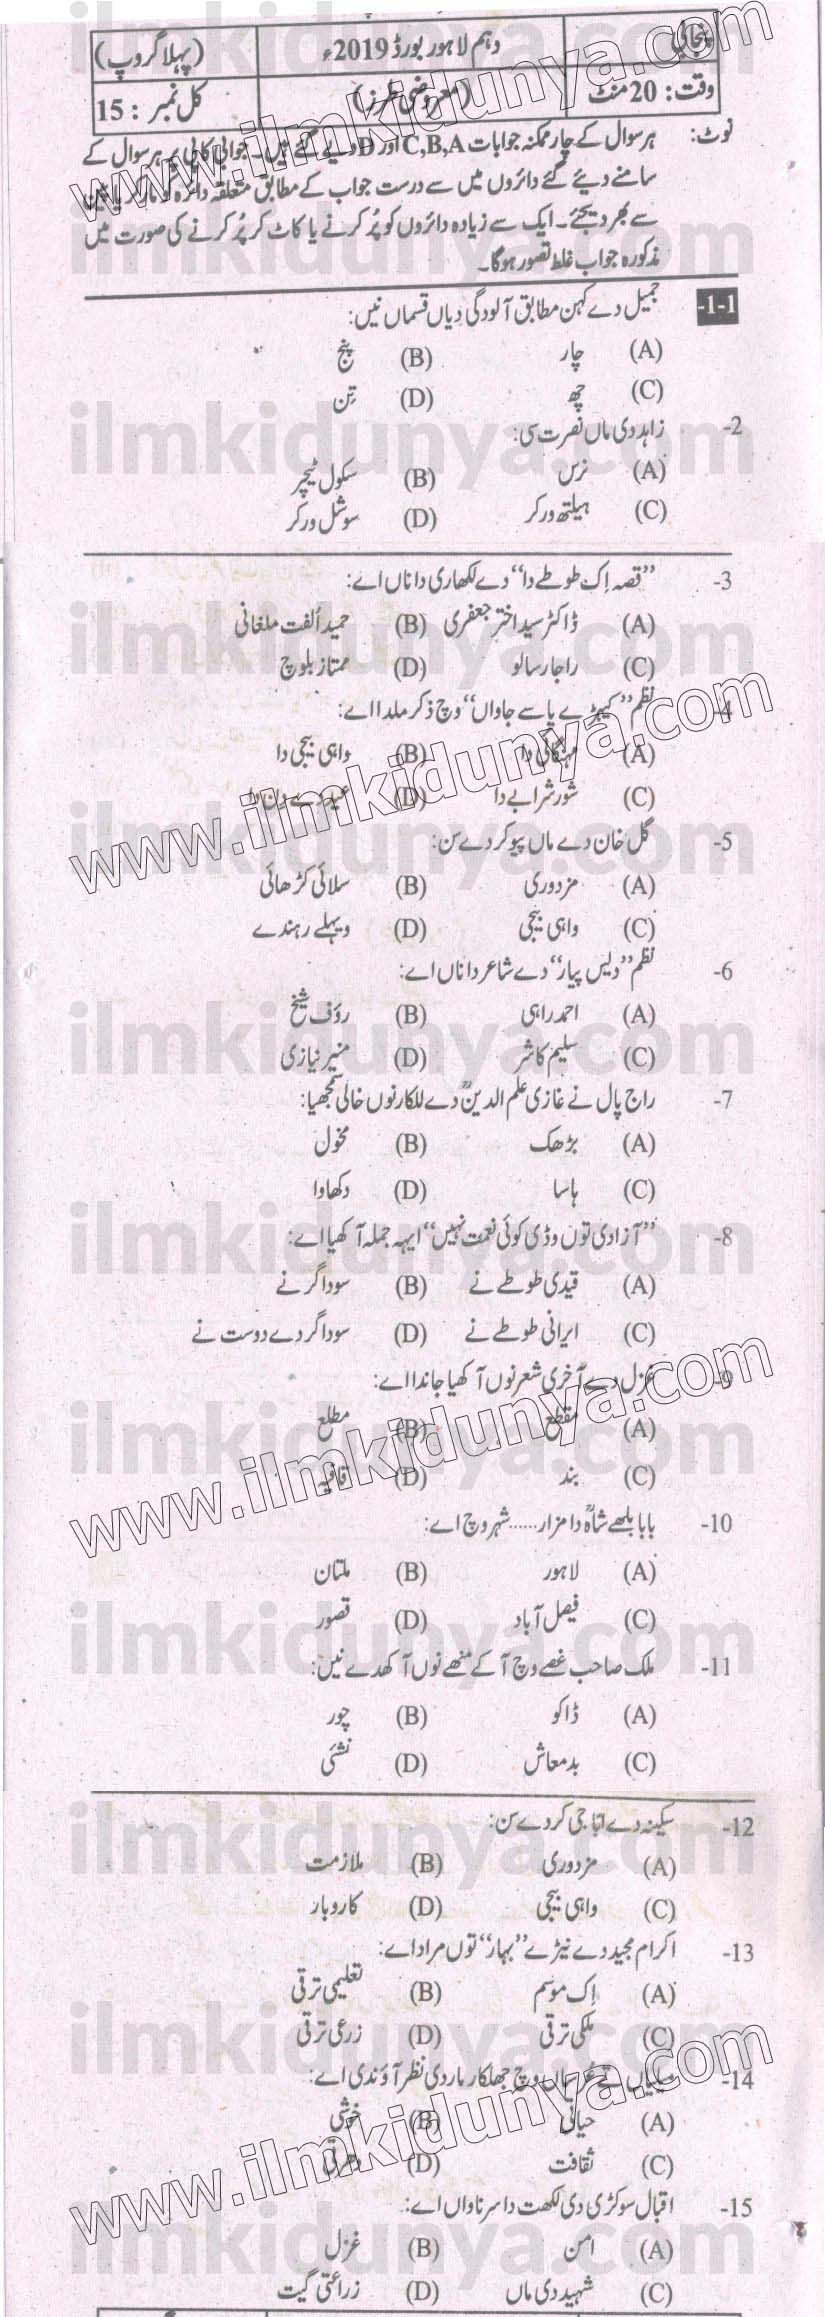 پنجابی	دہم لاہور بورڈ 2019ء	(پہلا گروپ)
وقت: 20 منٹ	(معروضی طرز)	کل نمبر: 15
نوٹ: ہر سوال کے چار ممکنہ جوابات C,B,A اور D دیے گئے ہیں۔ جوابی کاپی پر ہر سوال کے
سامنے دیئے گئے دائروں میں سے درست جواب کے مطابق متعلقہ دائرہ کو مارکر یا پین
سے بھر دیجئے۔ ایک سے زیادہ دائروں کو پُر کرنے یا کاٹ کر پُر کرنے کی صورت میں
مذکورہ جواب غلط تصور ہوگا۔
1-1- جمیل دے کہن مطابق آلودگی دیاں قسماں نیں:
(A) چار (B) پنج
(C) چھ (D) تِن
2- زاہد دی ماں نصرت سی:
(A) نرس (B) سکول ٹیچر
(C) ہیلتھ ورکر (D) سوشل ورکر
3- ”قصہ اِک طوطے دا“ دے لکھاری دا ناں اے:
(A) ڈاکٹر سید اختر جعفری (B) حمید اُلفت ملغانی
(C) راجا رسالو (D) ممتاز بلوچ
4- نظم ”کیہڑے پاسے جاواں“ وچ ذکر ملدا اے:
(A) مہنگائی دا (B) واہی بیجی دا
(C) شور شرابے دا (D) عید دے دن دا
5- گل خان دے ماں پیو کردے سن:
(A) مزدوری (B) سلائی کڑھائی
(C) واہی بیجی (D) ویہلے رہندے
6- نظم ”دیس پیار“ دے شاعر دا ناں اے:
(A) احمد راہی (B) رؤف شیخ
(C) سلیم کاشر (D) منیر نیازی
7- راج پال نے غازی علم الدینؒ دے للکار نوں خالی سمجھیا:
(A) بڑھک (B) مخول
(C) ہاسا (D) دکھاوا
8- ”آزادی توں وڈی کوئی نعمت نہیں“ ایہہ جملہ آکھیا اے:
(A) قیدی طوطے نے (B) سوداگر نے
(C) ایرانی طوطے نے (D) سوداگر دے دوست نے
9- غزل دے آخری شعر نوں آکھیا جاندا اے:
(A) مقطع (B) مطلع
(C) بند (D) قافیہ
10- بابا بلھے شاہؒ دا مزار ...... شہر وچ اے:
(A) لاہور (B) ملتان
(C) فیصل آباد (D) قصور
11- ملک صاحب غصے وچ آ کے مٹھے نوں آکھدے نیں:
(A) ڈاکو (B) چور
(C) بدمعاش (D) نشئی
12- سکینہ دے ابا جی کردے سن:
(A) مزدوری (B) ملازمت
(C) واہی بیجی (D) کاروبار
13- اکرام مجید دے نیڑے ”بہار“ توں مراد اے:
(A) اِک موسم (B) تعلیمی ترقی
(C) ملکی ترقی (D) زرعی ترقی
14- میلیاں تے عرساں وچ جھلکار ماردی نظر آؤندی اے:
(A) حیاتی (B) خوشی
(C) ثقافت (D) دھرتی
15- اقبال سوکڑی دی لکھت دا سرناواں اے:
(A) امن (B) غزل
(C) شہید دی ماں (D) زراعتی گیت
www.ilmkidunya.com
ilmkidunya.com